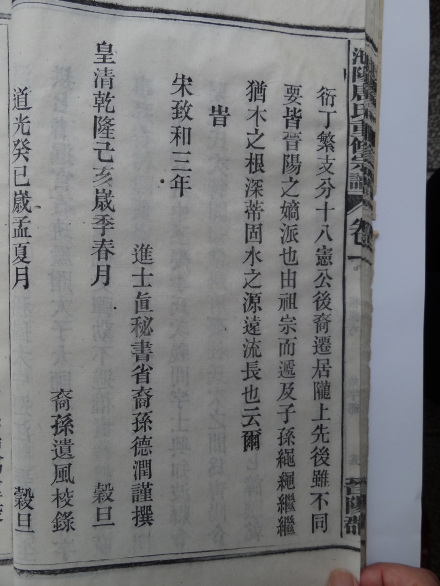 陽唐氏重修宗譜 卷
晉陽郡
衍丁繁支分十八憲公後裔遷居隴上先後雖不同
要皆晉陽之嫡派也由祖宗而遞及子孫繩繩繼繼
猶木之根深蒂固水之源遠流長也云爾
旹
宋致和三年
進士直秘書省裔孫德潤謹撰
皇清乾隆己亥歲季春月 穀旦
裔孫遺風校錄
道光癸巳歲孟夏月 穀旦